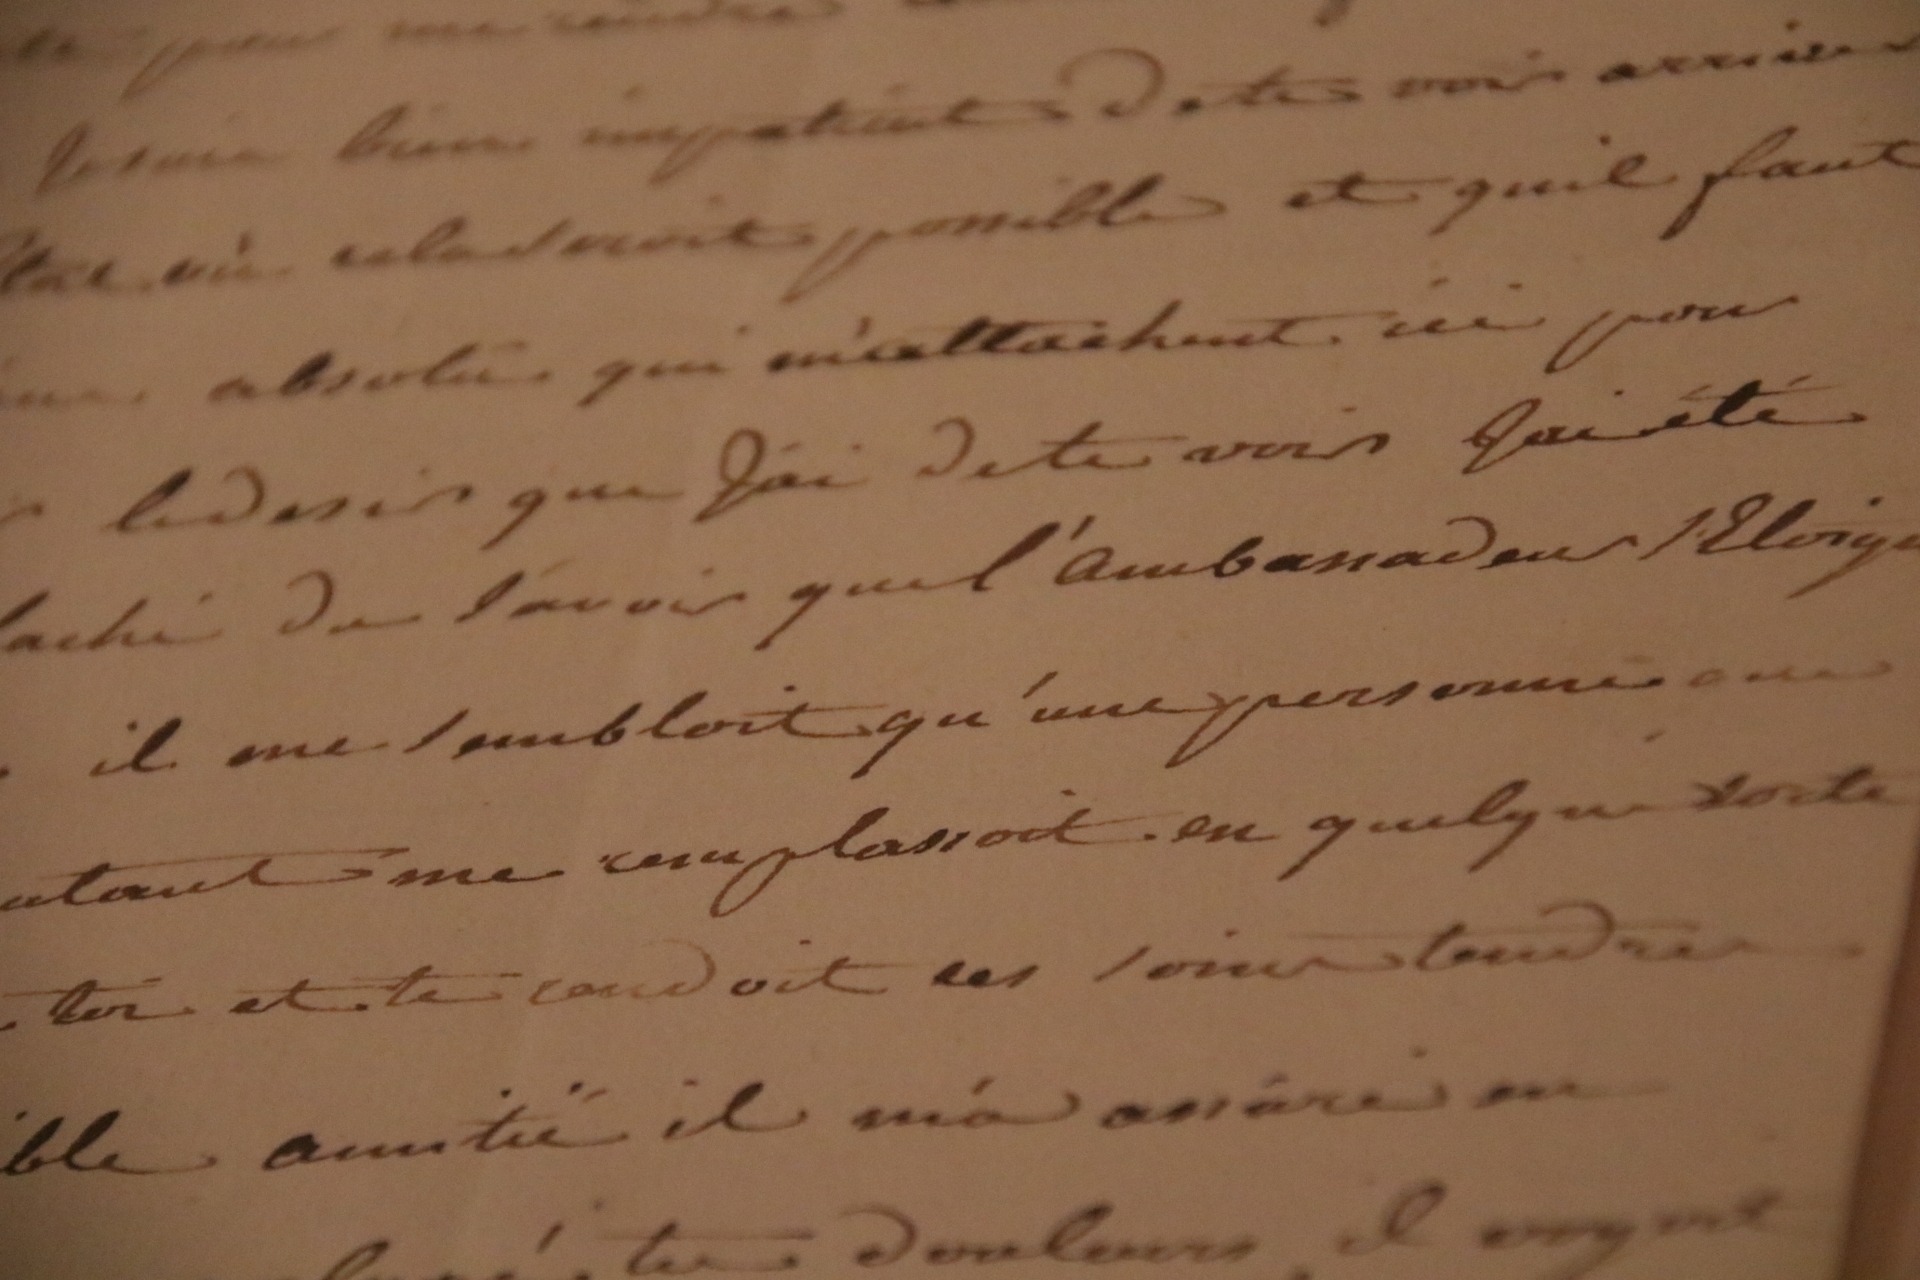 pour me rendre
Je suis bien impatient de te voir arriver
où cela seroit possible et quil faut
absolue qui m'attachent ici pour
le desir que J'ai de te voir J'ai été
faché de savoir que l'ambassadeur s'Eloign
il me sembloit qu'une personne
autant me remplassoit en quelque sorte
toi et te rendoit ces soins tendres
ible amitié il m'a assuré
tes douleurs il voyoit